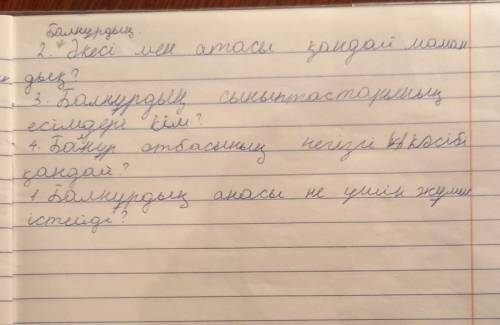 Балнурдың
2. Әкесі мен атасы қандай маман
дық?
3. Балнұрдың сыныптастарының
есімдері кім?
4. Банур отбасының негізгі кәсібі
қандай?
1 Балнурдың анасы не үшін жұмыс
істейді?